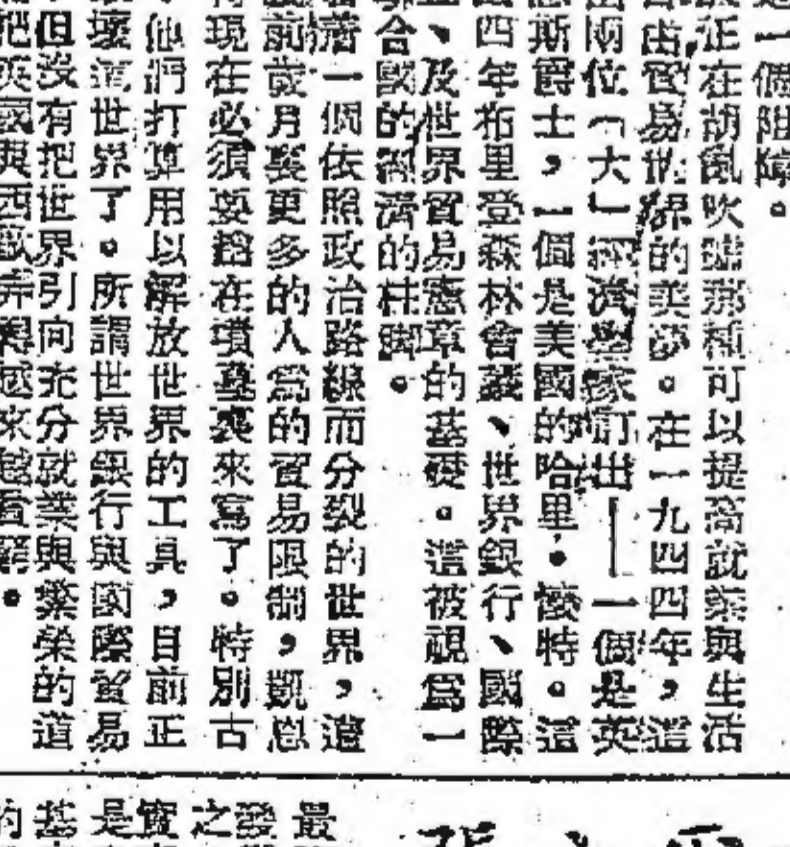 一個阻障。
正在胡亂吹噓那種可以提高就業與生活
由貿易世界的美夢。在一九四四年,這
兩位「大」經濟學家訂出——一個是英
斯爵士,一個是美國的哈里・懷特。這
四年布里登森林會議、世界銀行、國際
、及世界貿易憲章的基礎。這被視爲一
合國的經濟的柱脚。
着一個依照政治路線而分裂的世界,這
前歲月要更多的人爲的貿易限制,凱恩
現在必須要搭在墳墓裏來寫了。特別古
他們打算用以解放世界的工具,目前正
壞這世界了。所謂世界銀行與國際貿易
但沒有把世界引向充分就業與繁榮的道
把英國與西歐弄得越來越看窮。
最
發
之
實
是
基
的